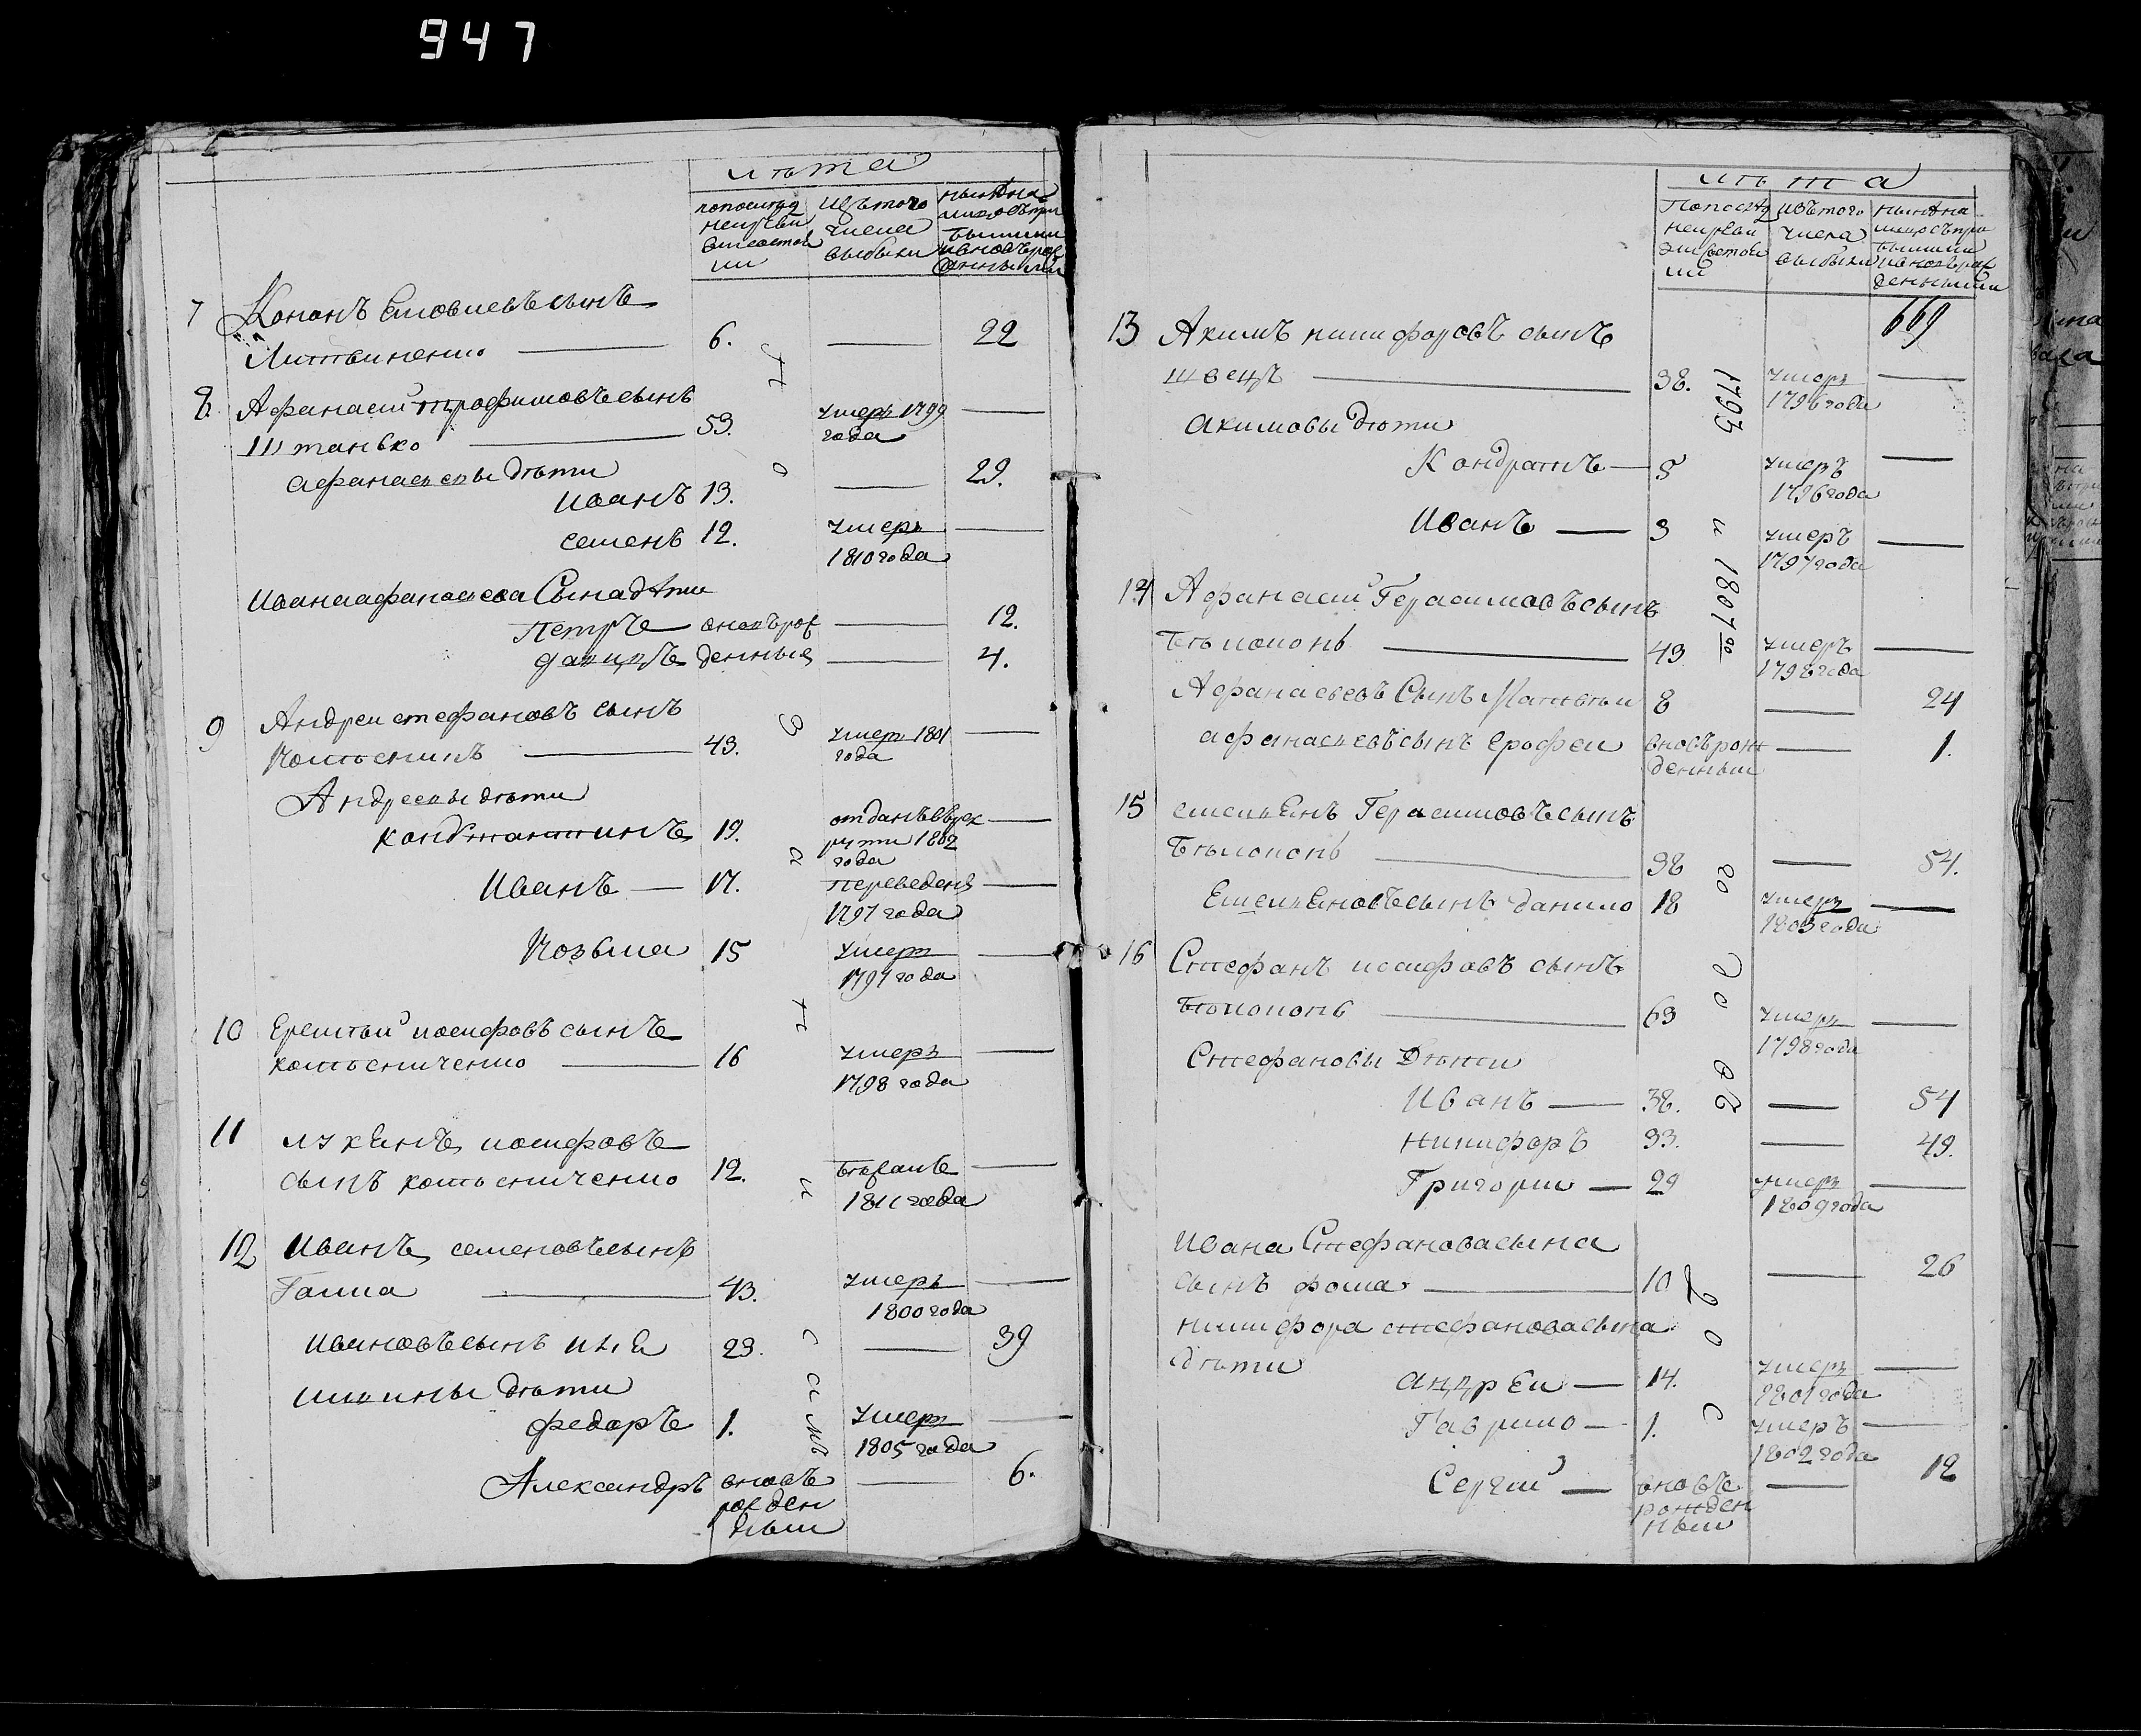 947
лѣта
попослед
ней реви
зи состоя
ли
изътого
числа
выбыли
нынѣна
лицо съпри
былыми
7 Кононъ Еловлевъ сынъ
Литвиненко — 6. — 22
8 Афанасий трофимовъ сынъ
Штанько — 53. умеръ 1799 —
года
афанасьевы дѣти
Иванъ 13. — 29.
семенъ 12. умеръ —
1810 года
Ивана афанасьева Сына дѣти
Петръ вновърож — 12.
денные — 4.
9 Андреи стефановъ сынъ
43. умеръ 1801 —
года
Андреевы дѣти
константинъ 19. отданъ въ рек —
руты 1802
года
Иванъ — 17. переведенъ —
1797 года
Козьма 15 умеръ —
1797 года
10 Еремѣй иосифовъ сынъ
16 умеръ —
1798 года
11 лукьянъ иосифовъ
сынъ 12. —
1811 года
12 Иванъ семеновъ сынъ
Галка — 43. умеръ —
1800 года
Ивановъ сынъ илья 23. — 39
ильины дѣти
федоръ 1. умеръ —
1805 года
Александръ вновь — 6.
рожден
ныи
лѣта
Попослед
ней реви
зи состоя
ли
изътого
числа
выбыли
нынѣна
лицо съпри
былыми
ивновьрож
денными
669
13 Акимъ никифоровъ сынъ
швецъ — 38. умеръ —
1796 года
акимовы дѣти
Кондратъ — 5 умеръ —
1796 года
Иванъ — 3 умеръ —
1797 года
1793
и 1807го
14 Афанасий Герасимовъ сынъ
Бѣлоконь — 43 умеръ —
1798 года
Афанасьевъ Сынъ Матвѣи 8 — 24
афанасьевъ сынъ ерофеи вновьрож — 1.
денныи
15 емельянъ Герасимовъ сынъ
Бѣлоконь — 38 — 54.
Емельяновъ сынъ данило 18 умеръ —
1803 года
16 Стефанъ иосифовъ сынъ
Бѣлоконь — 63 умеръ —
1798 года
Стефановы Дѣти
Иванъ — 38. — 54
никифоръ 33. — 49.
Григории — 29 умеръ —
1809 года
Ивана Стефановасына
сынъ фома — 10 — 26
никифора стефановасына
дѣти
андреи — 14. умеръ —
1801 года
Гаврило — 1. умеръ —
1802 года
Сергий — вновь — 12
рожден
ныи